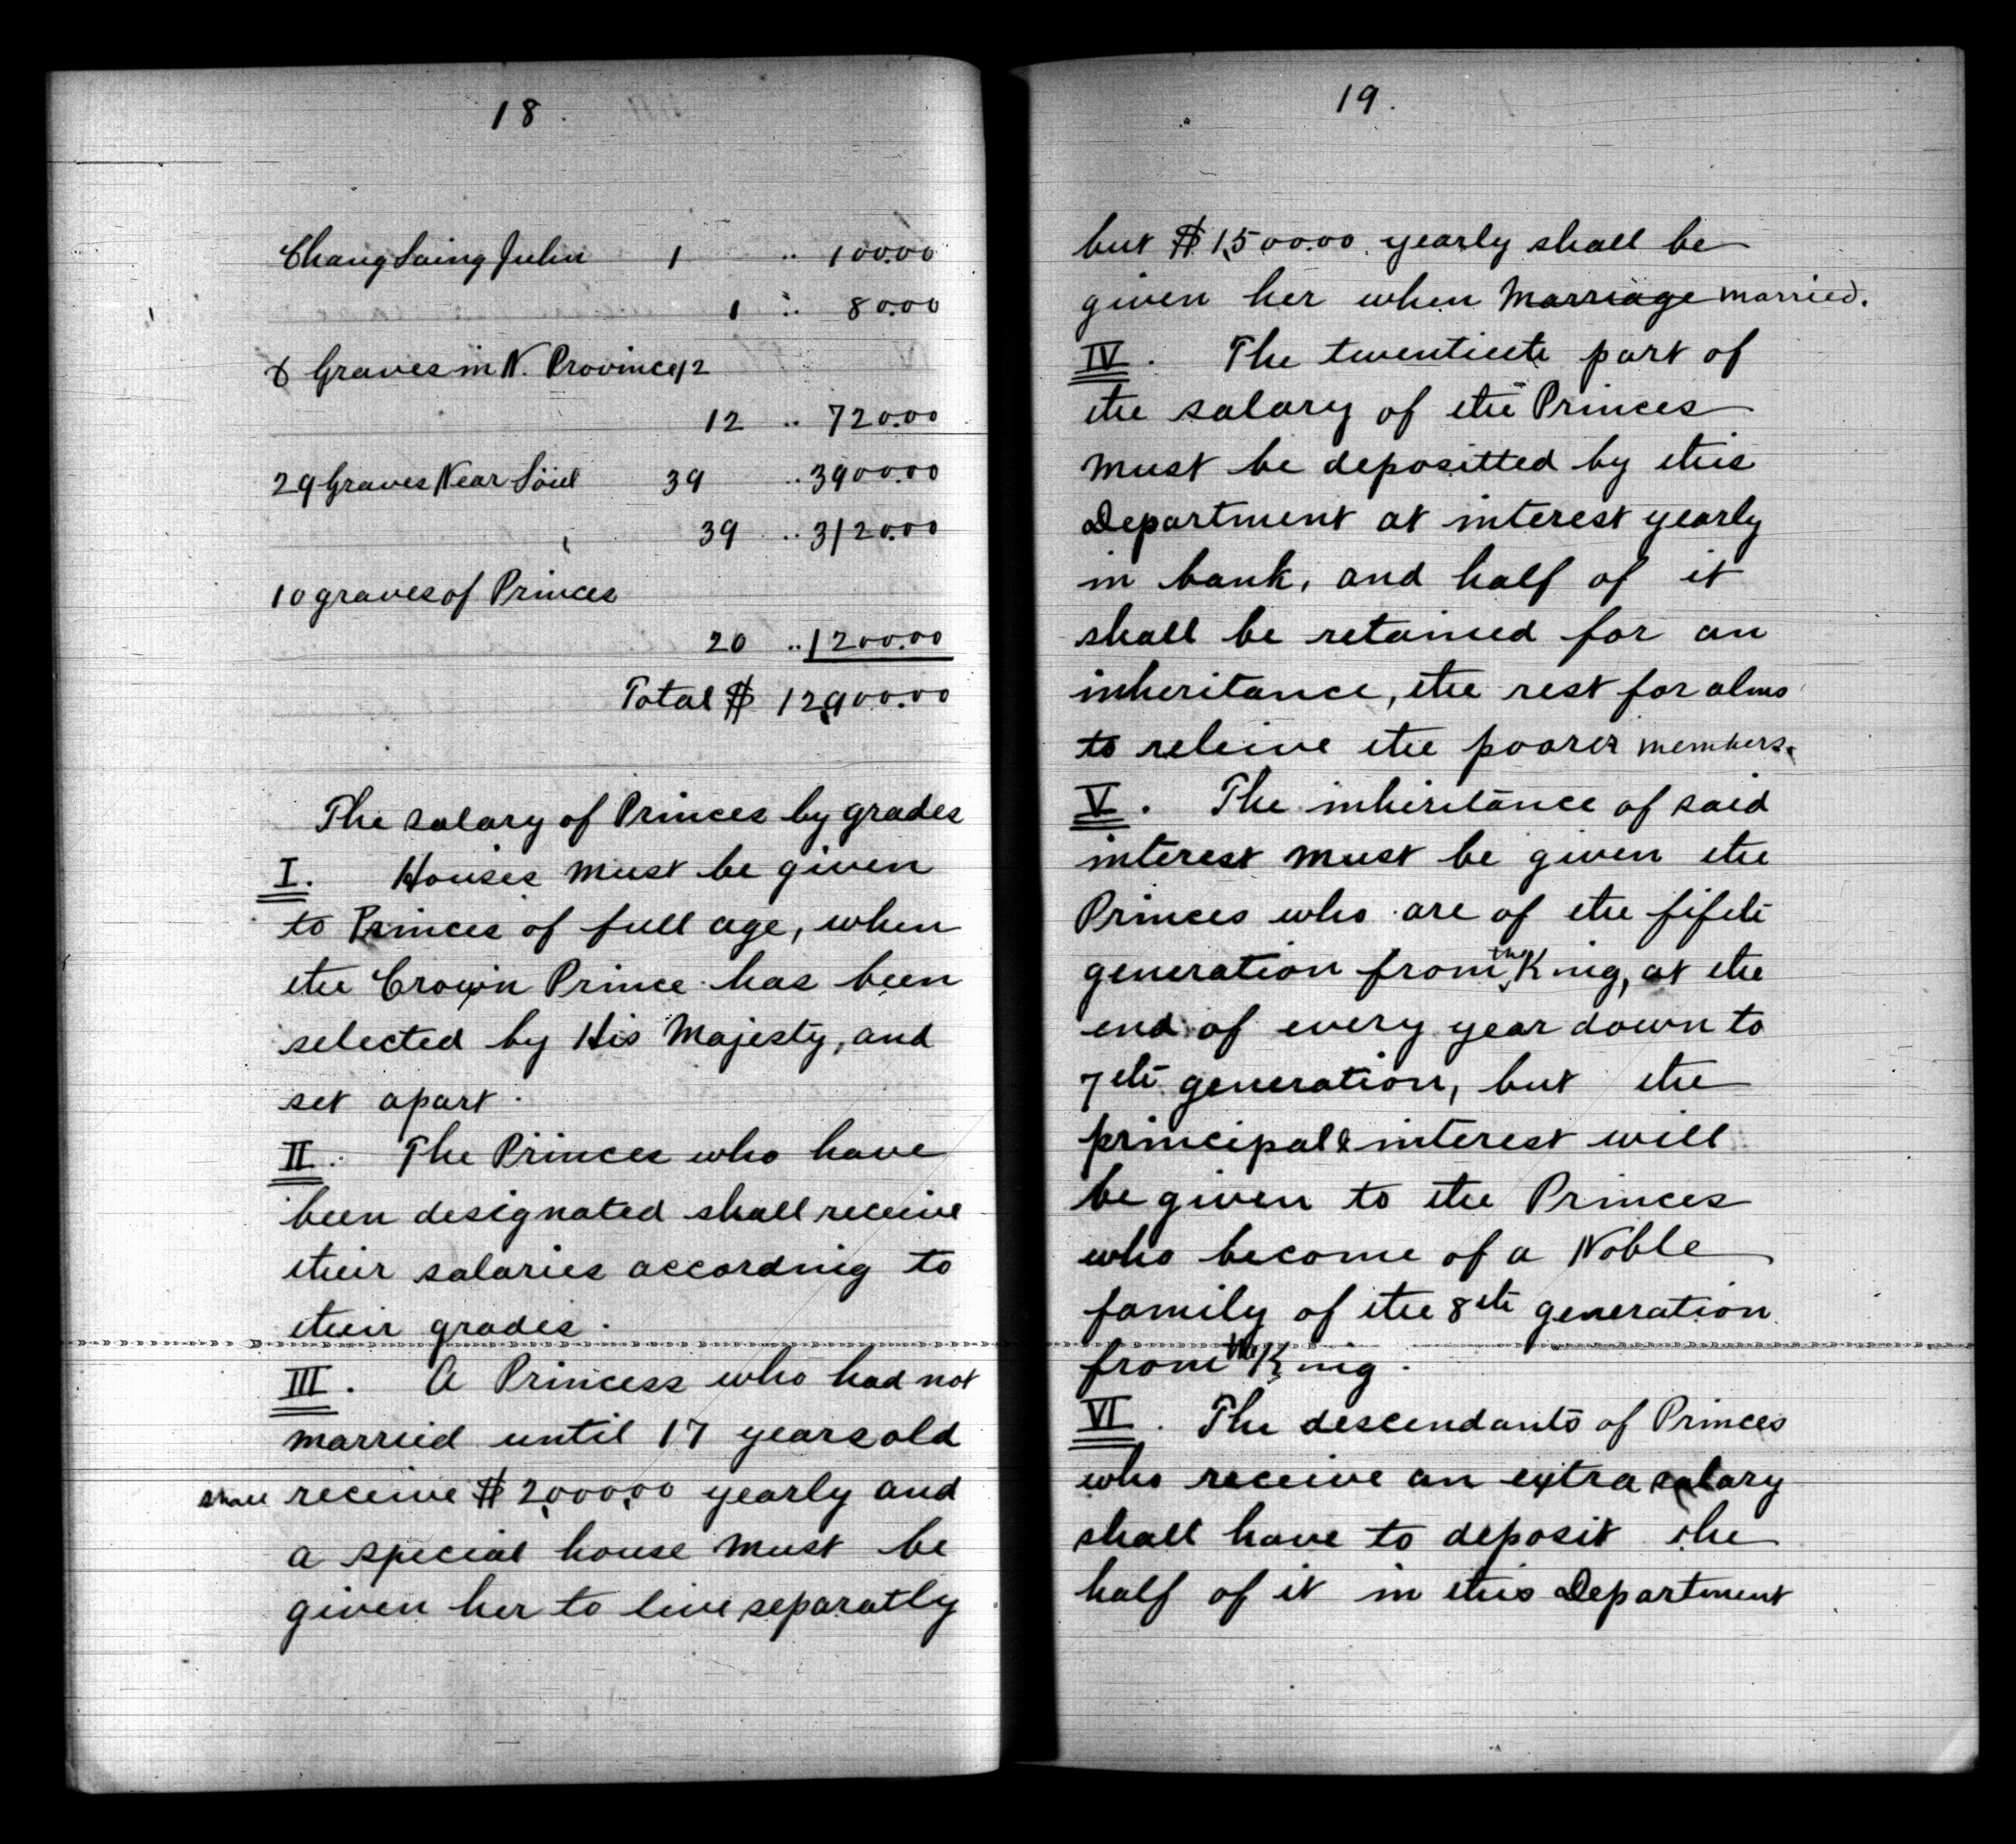 18.
Chang Saing Juhn 1 .. 100.00
1 .. 80.00
8 Graves in N. Province 12
12 .. 720.00
29 Graves Near Söul 39 .. 3900.00
39 .. 3120.00
10 graves of Princes
20 .. 1200.00
Total $ 12,900.00
The salary of Princes by grades
I. Houses must be given
to Princes of full age, when
the Crown Prince has been
selected by His Majesty, and
set apart.
II. The Princes who have
been designated shall receive
their salaries according to
their grades.
III. A Princess who had not
married until 17 years old
shall receive $ 2,000.00 yearly and
a special house must be
given her to live separatly
19.
but $ 1,500.00 yearly shall be
given her when Marriage married.
IV. The twentieth part of
the salary of the Princes
must be depositted by this
Department at interest yearly
in bank, and half of it
shall be retained for an
inheritance, the rest for alms
to releive the poorer members.
V. The inheritance of said
interest must be given the
Princes who are of the fifth
generation from the King, at the
end of every year down to
7th generation, but the
principal & interest will
be given to the Princes
who become of a Noble
family of the 8th generation
from the King.
VI. The descendants of Princes
who receive an extra salary
shall have to deposit the
half of it in this Department